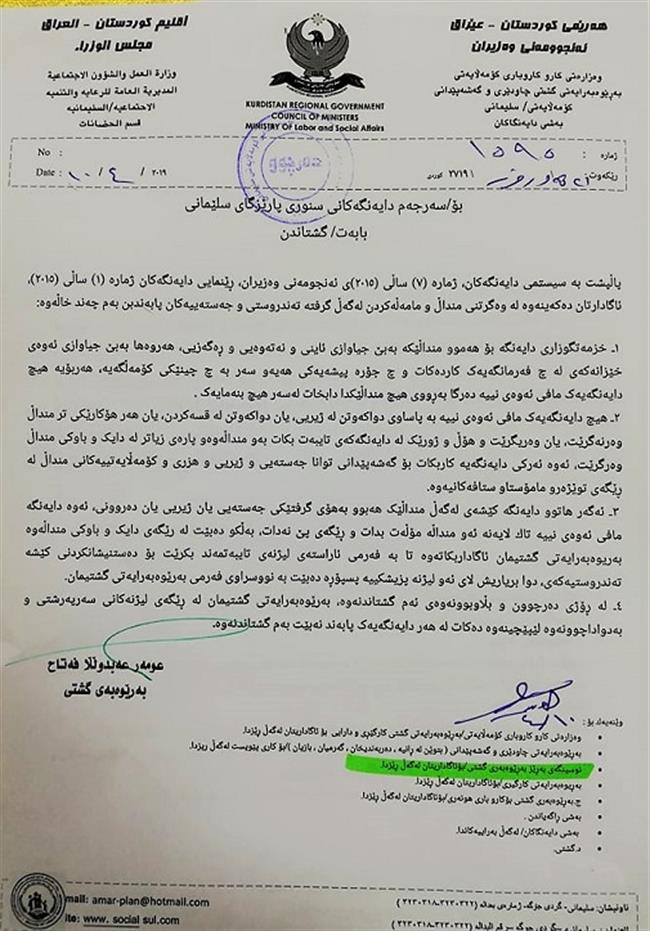 هەرێمی کوردستان - عێراق
ئەنجوومەنی وەزیران
وەزارەتی کارو کاروباری کۆمەڵایەتی
بەڕێوەبەرایەتی گشتی چاودێری و گەشەپێدانی
کۆمەڵایەتی/ سلێمانی
بەشی دایەنگاکان
KURDISTAN REGIONAL GOVERNMENT
COUNCIL OF MINISTERS
MINISTRY of Labor and Social Affairs
أقلیم كوردستان - العراق
مجلس الوزراء
وزارة العمل والشؤون الاجتماعية
المديرية العامة للرعاية والتنمية
الاجتماعية/السليمانية
قسم الحضانات
ژمارە : ١٥٩٥
ڕێکەوت / ٢٧١٩ کوردی
No :
Date : ١٠ / ٤ / ٢٠١٩
دەرچوو
بۆ/سەرجەم دایەنگەکانی سنوری پارێزگای سلێمانی
بابەت/ گشتاندن
پاڵپشت بە سیستمی دایەنگەکان، ژمارە (٧) ساڵی (٢٠١٥)ی ئەنجومەنی وەزیران، ڕێنمایی دایەنگەکان ژمارە (١) ساڵی (٢٠١٥)،
ئاگادارتان دەکەینەوە لە وەرگرتنی منداڵ و مامەڵەکردن لەگەڵ گرفتە تەندروستی و جەستەییەکان پابەندبن بەم چەند خاڵەوە:
١- خزمەتگوزاری دایەنگە بۆ هەموو منداڵێکە بەبێ جیاوازی ئاینی و نەتەوەیی و ڕەگەزیی، هەروەها بەبێ جیاوازی ئەوەی
خێزانەکەی لە چ فەرمانگەیەک کاردەکات و چ جۆرە پیشەیەکی هەیەو سەر بە چ چینێکی کۆمەڵگەیە، هەربۆیە هیچ
دایەنگەیەک مافی ئەوەی نییە دەرگا بەڕووی هیچ منداڵێکدا دابخات لەسەر هیچ بنەمایەک .
٢- هیچ دایەنگەیەک مافی ئەوەی نییە بە پاساوی دواکەوتن لە ژیریی، یان دواکەوتن لە قسەکردن، یان هەر هۆکارێکی تر منداڵ
وەرنەگرێت، یان وەریگرێت و هۆڵ و ژورێک لە دایەنگەکەی تایبەت بکات بەو منداڵەوەو پارەی زیاتر لە دایک و باوکی منداڵ
وەرگرێت، ئەوە ئەرکی دایەنگەیە کاربکات بۆ گەشەپێدانی توانا جەستەیی و ژیریی و هزری و کۆمەڵایەتییەکانی منداڵ لە
ڕێگەی توێژەرو مامۆستاو ستافەکانیەوە.
٣- ئەگەر هاتوو دایەنگە کێشەی لەگەڵ منداڵێک هەبوو بەهۆی گرفتێکی جەستەیی یان ژیریی یان دەروونی، ئەوە دایەنگە
مافی ئەوەی نییە تاک لایەنە ئەو منداڵە مۆڵەت بدات و ڕێگەی پێ نەدات، بەڵکو دەبێت لە ڕێگەی دایک و باوکی منداڵەوە
بەریوەبەرایەتی گشتیمان ئاگاداربکاتەوە تا بە فەرمی ئاراستەی لیژنەی تایبەتمەند بکرێت بۆ دەستنیشانکردنی کێشە
تەندروستیەکەی، دوا بریاریش لای ئەو لیژنە پزیشکییە پسپۆڕە دەبێت بە نووسراوی فەرمی بەڕێوەبەرایەتی گشتیمان.
٤- لە ڕۆژی دەرچوون و بڵاوبوونەوەی ئەم گشتاندنەوە، بەڕێوەبەرایەتی گشتیمان لە ڕێگەی لیژنەکانی سەرپەرشتی و
بەدواداچوونەوە لێپێچینەوە دەکات لە هەر دایەنگەیەک پابەند نەبێت بەم گشتاندنەوە.
عومەر عەبدوڵلا فەتاح
بەڕێوەبەی گشتی
٤/١٠
وێنەیەک بۆ :
وەزارەتی کارو کاروباری کۆمەڵایەتی/بەڕێوەبەرایەتی گشتی کارگێری و دارایی بۆ ئاگاداریتان لەگەڵ ڕێزدا.
بەڕێوەبەرایەتی چاودێری و گەشەپێدانی ( بتوێن لە ڕانیە ، دەربەندیخان ، گەرمیان ، بازیان )/بۆ کاری پێویست لەگەڵ ریزدا.
نوسینگەی بەڕێز بەڕێوەبەری گشتی/بۆئاگاداریتان لەگەڵ ڕێزدا.
بەڕیوەبەرایەتی کارگێری/بۆئاگاداریتان لەگەڵ ڕێزدا.
ج.بەڕێوەبەری گشتی بۆکارو باری هونەری/بۆئاگاداریتان لەگەڵ ڕێزدا.
بەشی ڕاگەیاندن .
بەشی دایەنگاکان/ لەگەڵ بەراییەکاندا.
د.گشتی.
mail: amar-plan@hotmail.com
ite: www. social sul.com
ناونیشان: سلێمانی- گردی جۆگە- ژمارەی بەدالە (٣٢٣٠٣١٨-٣٢٣٠٣٢٢)